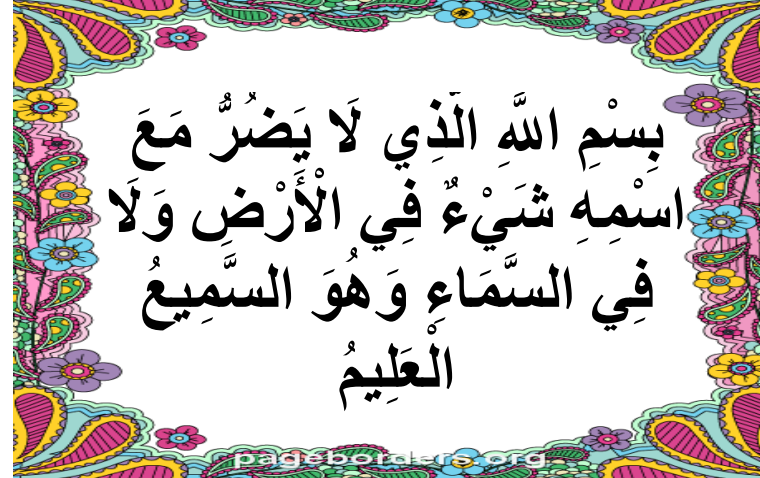 بِسْمِ اللَّهِ الَّذِي لَا يَضُرُّ مَعَ
اسْمِهِ شَيْءٌ فِي الْأَرْضِ وَلَا
فِي السَّمَاءِ وَهُوَ السَّمِيعُ
الْعَلِيمُ
pageborders.org